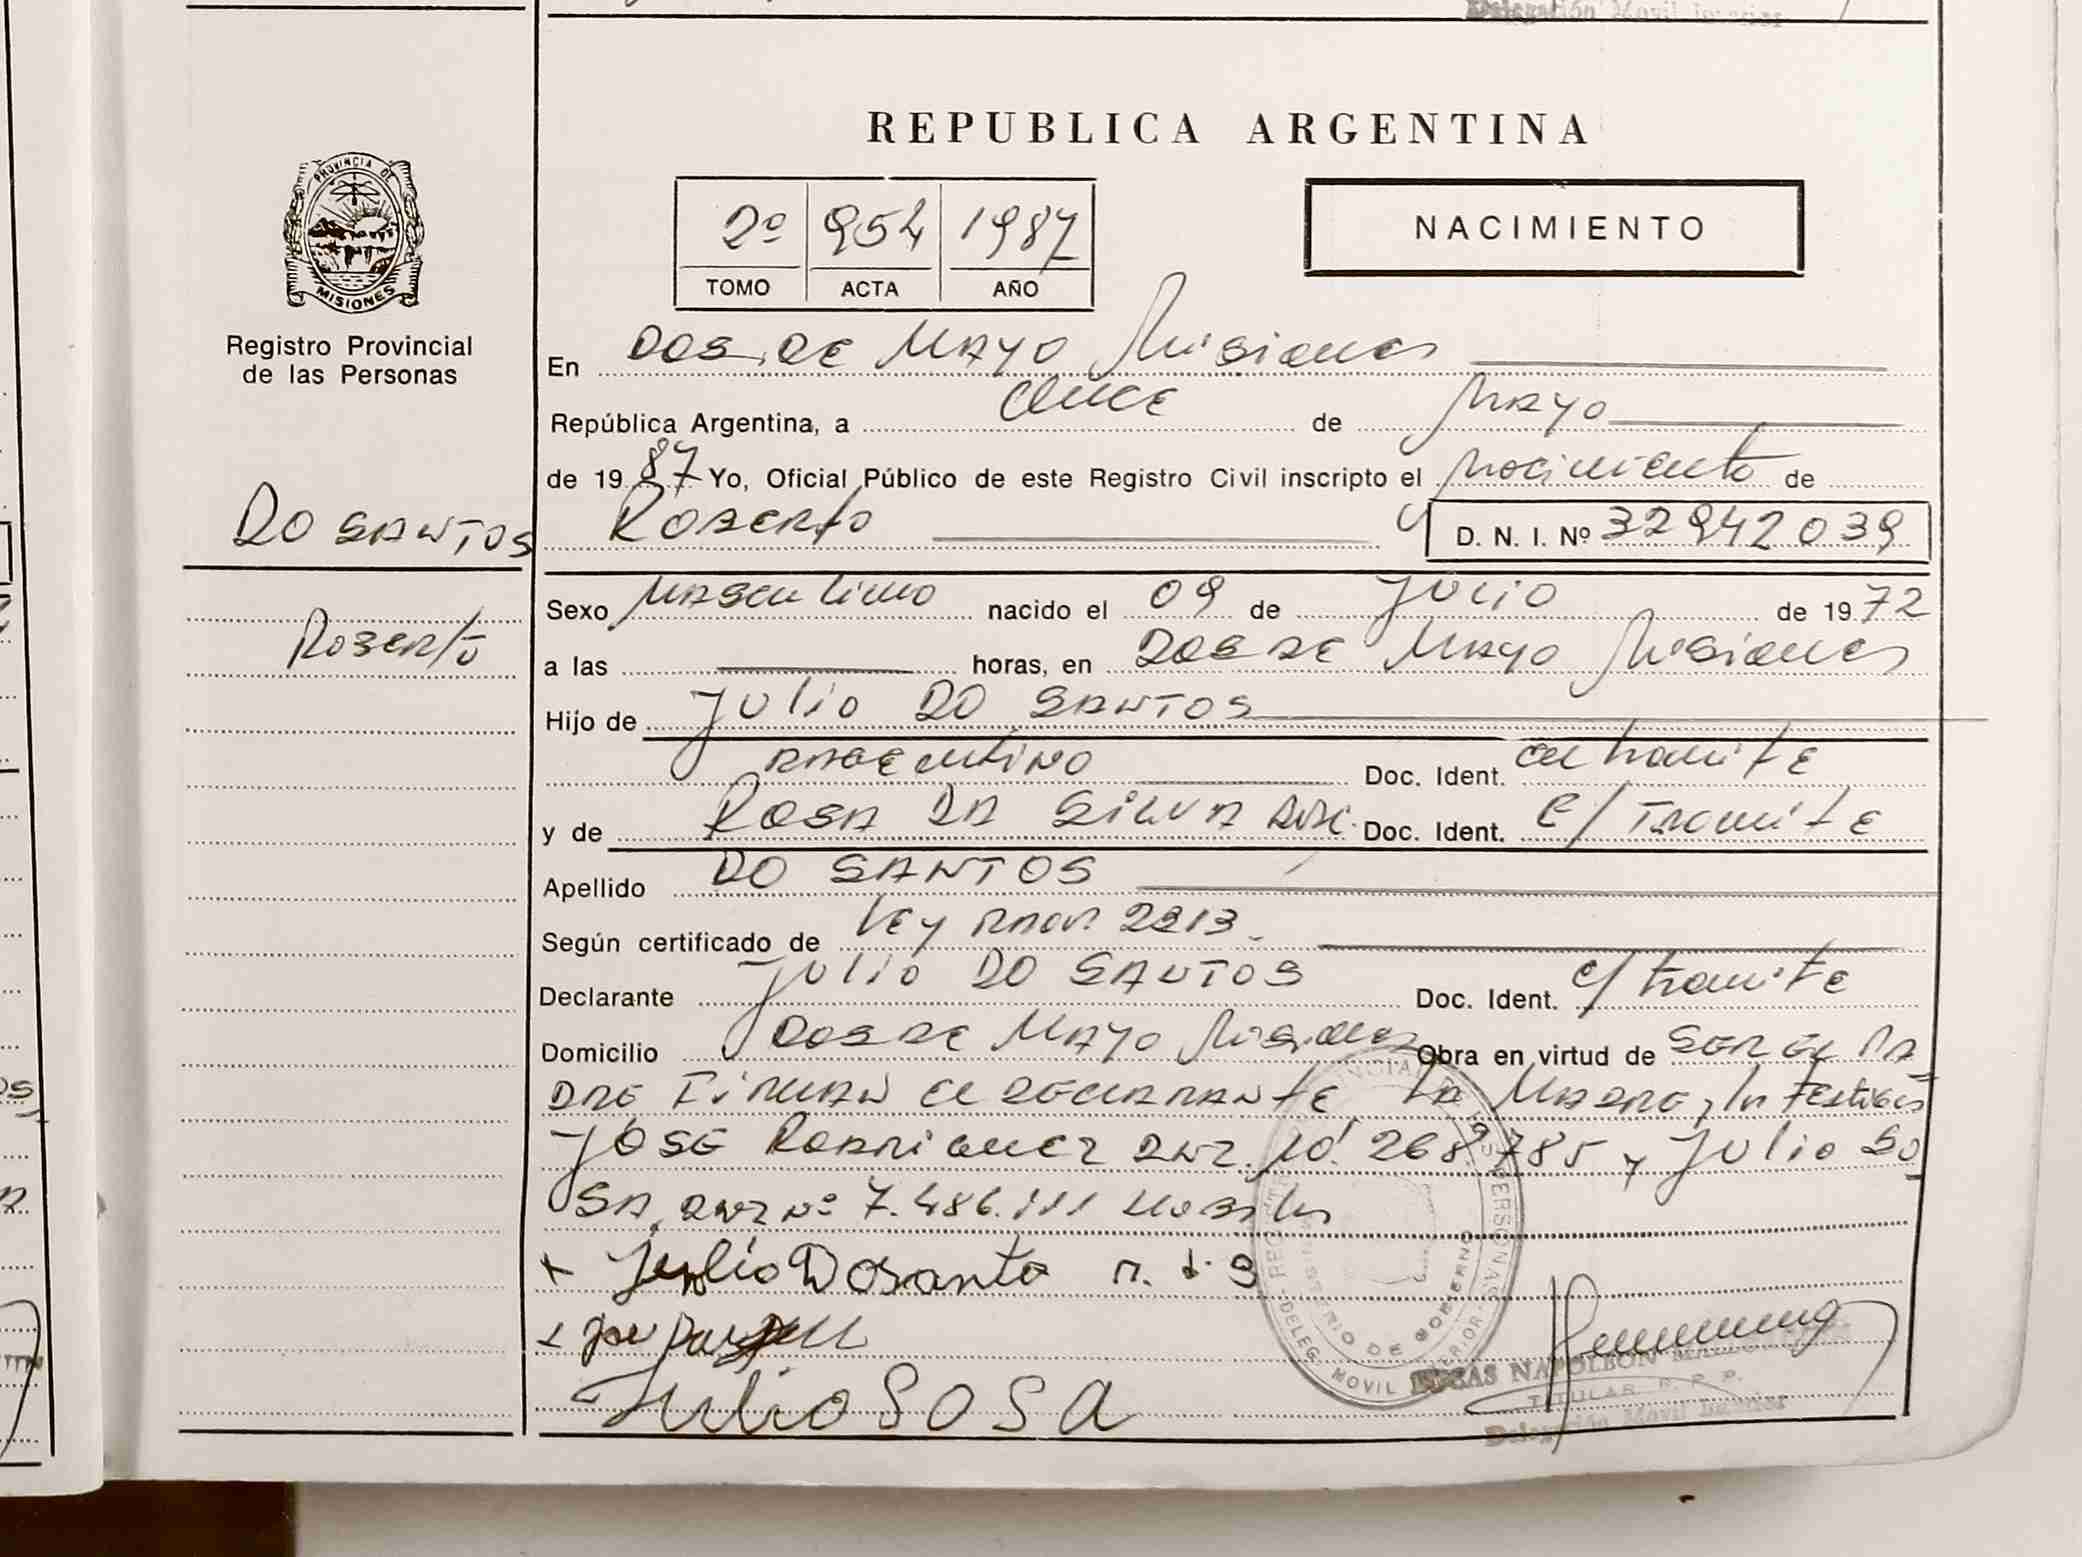 REPUBLICA ARGENTINA
PROVINCIA DE
MISIONES
Registro Provincial
de las Personas
2º 954 1987
TOMO ACTA AÑO
NACIMIENTO
En DOS DE MAYO Misiones
República Argentina, a once de MAYO
de 1987 Yo, Oficial Público de este Registro Civil inscripto el Nacimiento de
DO SANTOS
Roberto
D. N. I. Nº 32942039
Roberto
Sexo Masculino nacido el 09 de Julio de 1972
a las horas, en DOS DE MAYO Misiones
Hijo de Julio DO SANTOS
ARGENTINO Doc. Ident. en tramite
y de ROSA DA SILVA Doc. Ident. E/ Tramite
Apellido DO SANTOS
Según certificado de Ley 2213
Declarante Julio DO SANTOS Doc. Ident. e/ tramite
Domicilio DOS DE MAYO Misiones Obra en virtud de SER EL PA
DRE FIRMAN el DECLARANTE LA MADRE, los testigos
JOSE RODRIGUEZ DNI. Nº y Julio SO
SA, DNI Nº 7.486.111
x Julio Dosanto
Julio SOSA
MINISTERIO DE GOBIERNO
DELEG. MOVIL
LUCAS NAPOLEON
TITULAR R. P. P.
Delegación Movil